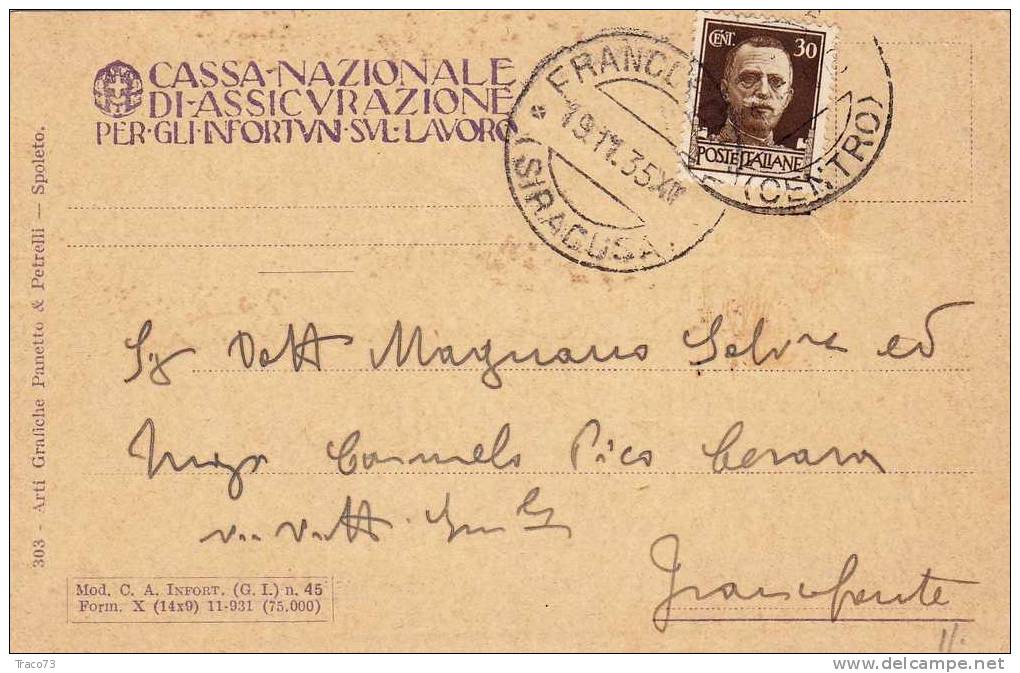 CASSA·NAZIONALE
DI·ASSICVRAZIONE
PER·GLI·INFORTVNI·SVL·LAVORO
FRANCO
(CENTRO)
* (SIRACUSA)
19.11.35 XIV
CENT. 30
POSTE ITALIANE
303 - Arti Grafiche Panetto & Petrelli — Spoleto.
Sg Dott Magnano Salvre ed
Carmelo Pico Cerara
via Vitt. Em
Francofonte
Mod. C. A. INFORT. (G. I.) n. 45
Form. X (14x9) 11-931 (75.000)
1/.
Traco73
delcampe.net